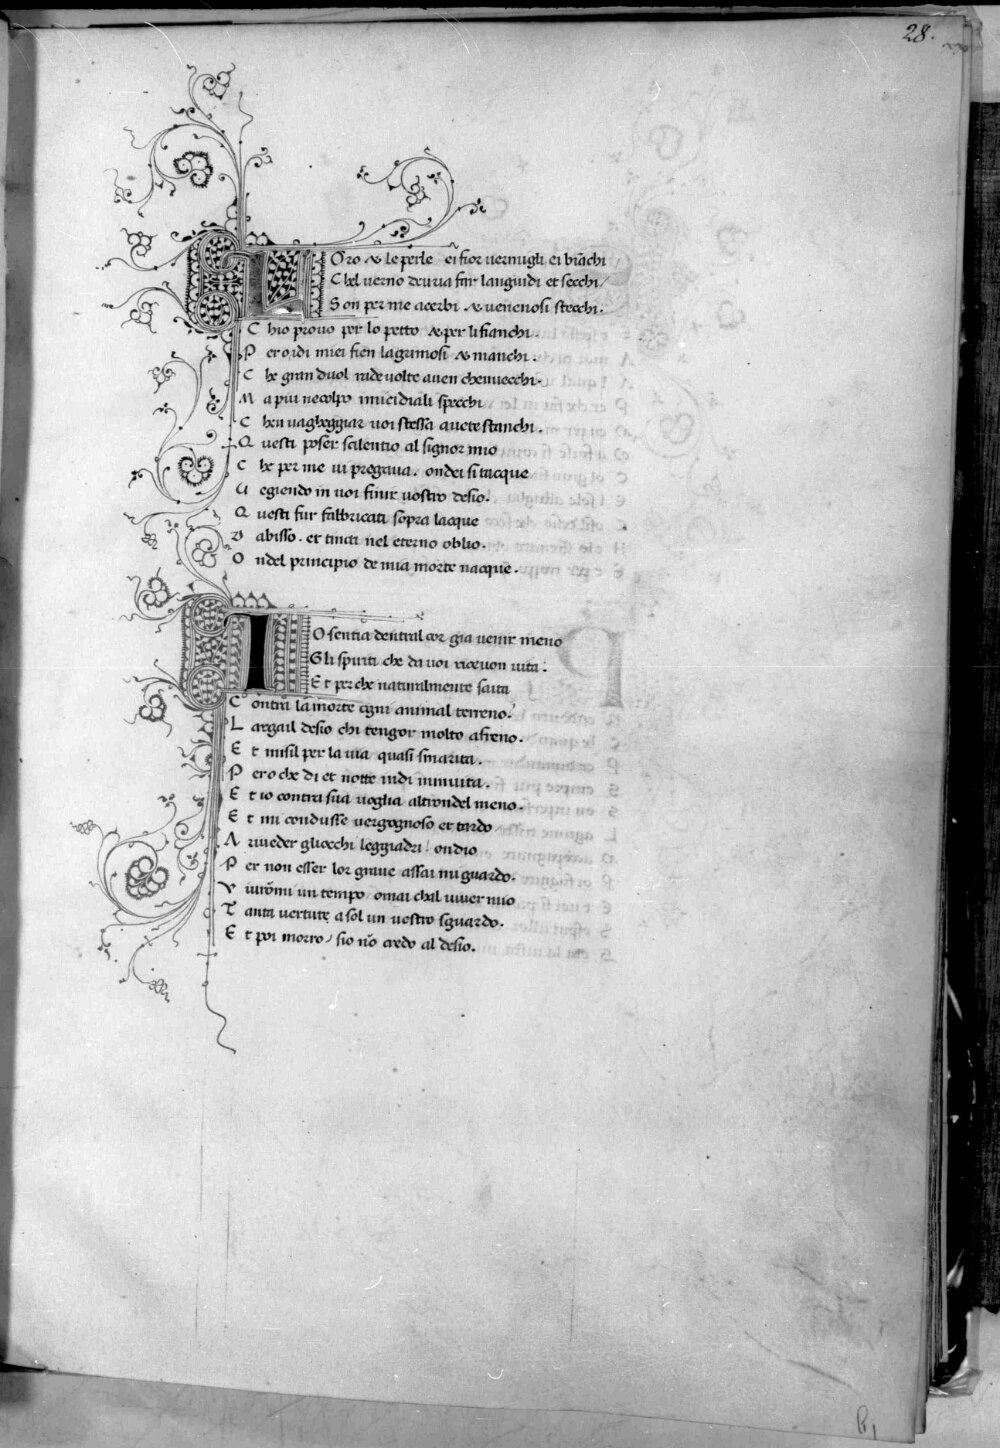 28.
L Oro & le perle ei fior uermigli ei biãchi
C hel uerno deuria far languidi et secchi/
S on per me acerbi & uenenosi stecchi.
C hio prouo per lo petto & per li fianchi.
P ero idi miei fien lagrimosi & manchi.
C he gran duol rade uolte auen chenuecchi.
M a piu necolpo imicidiali specchi
C hen uagheggiar uoi stessa auete stanchi.
Q uesti poser scilentio al signor mio
C he per me ui pregaua. ondei si tacque
U egiendo in uoi finir uostro desio.
Q uesti fur fabbricati sopra lacque
D abisso. et tincti nel eterno oblio.
O ndel principio de mia morte nacque.
I O sentia dentral cor gia uenir meno
G li spirti che da uoi riceuon uita.
E t perche naturalmente saita
C ontra la morte ogni animal terreno.
L argail desio chi tengor molto afreno.
E t misil per la uia quasi smarita.
P ero che di et notte indi minuita.
E t io contra sua uoglia altrondel meno.
E t mi condusse uergognoso et tardo
A riueder gliocchi leggiadri/ ondio
P er non esser lor graue assai mi guardo.
V iurõmi un tempo omai chal uiuer mio
T anta uertute a sol un uostro sguardo.
E t poi morro/ sio nõ credo al desio.